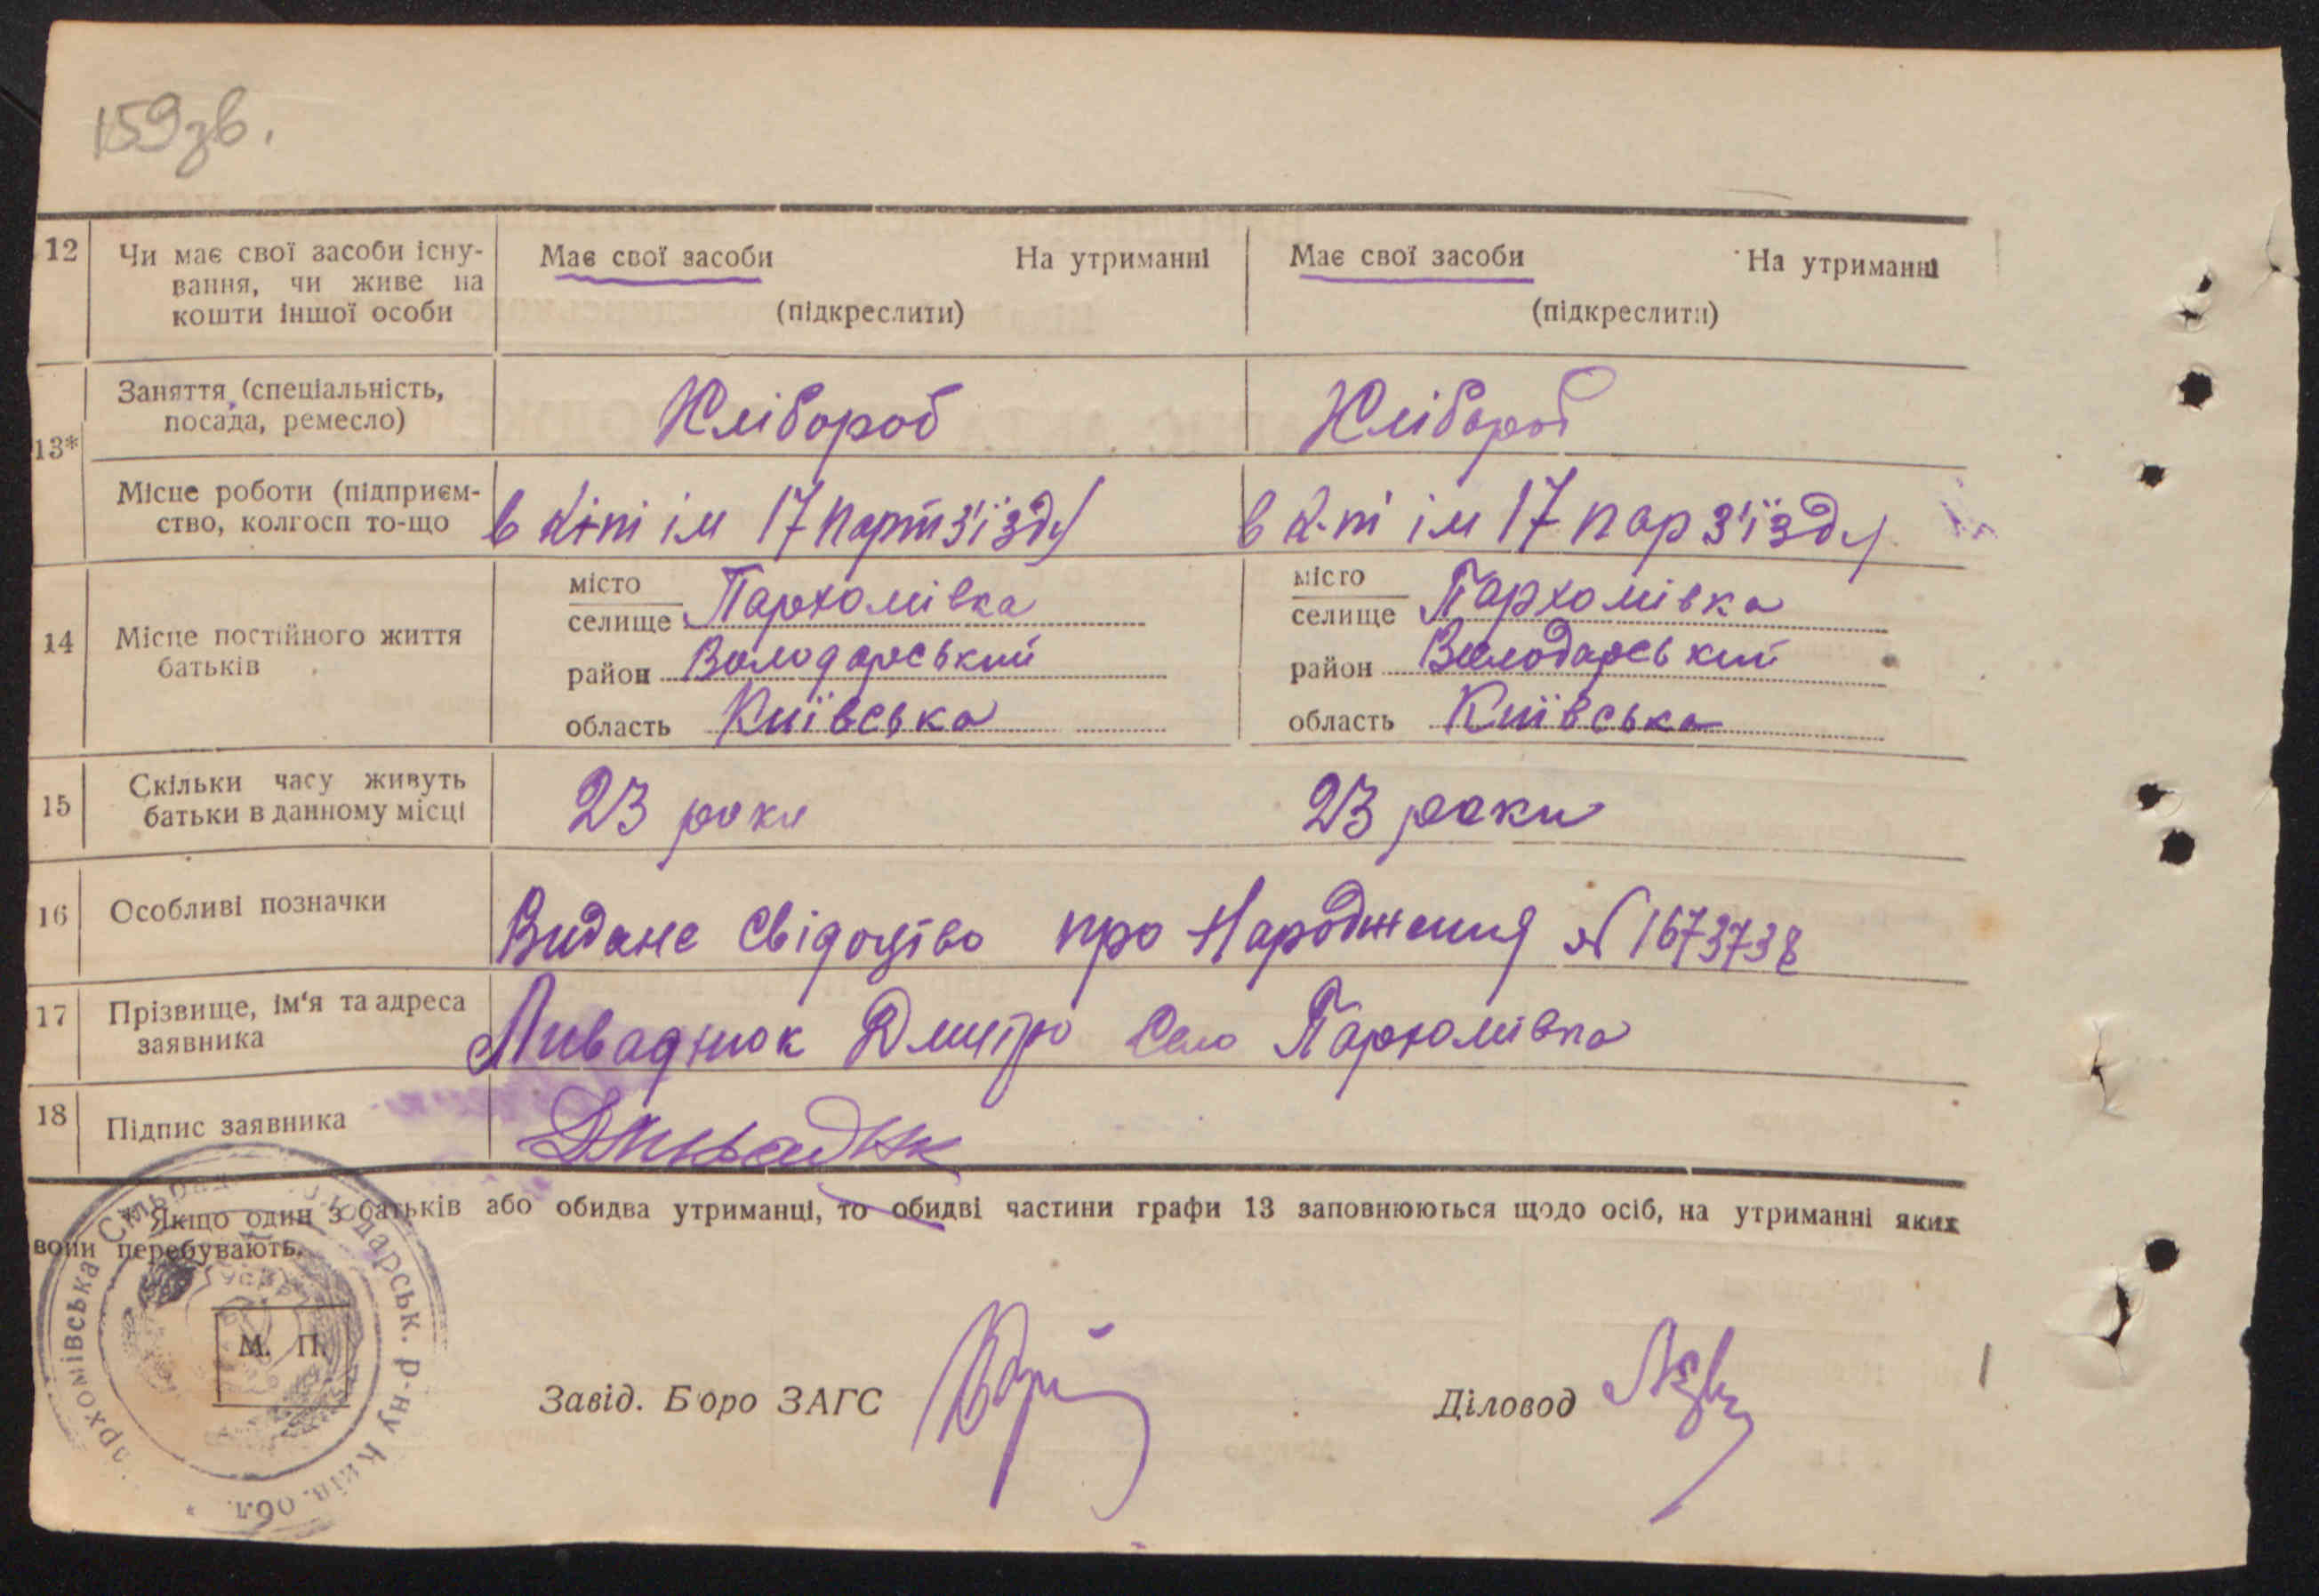 159зв.
12 Чи має свої засоби існу-
вання, чи живе на
кошти іншої особи
Має свої засоби На утриманні
(підкреслити)
Має свої засоби На утриманні
(підкреслити)
13*
Заняття (спеціальність,
посада, ремесло)
Хлібороб
Хлібороб
Місце роботи (підприєм-
ство, колгосп то-що
в к-пі ім 17 партз'їзду
в к-пі ім 17 парз'їзду
14 Місце постійного життя
батьків
місто
селище Пархомівка
район Володарський
область Київська
місто
селище Пархомівка
район Володарський
область Київська
15 Скільки часу живуть
батьки в данному місці
23 роки
23 роки
16 Особливі позначки
Видане свідоцтво про Народження № 1673738
17 Прізвище, ім'я та адреса
заявника
Ливаднюк Дмитро Село Пархомівка
18 Підпис заявника
* Якщо один з батьків або обидва утриманці, то обидві частини графи 13 заповнюються щодо осіб, на утриманні яких
вони перебувають.
архомівська Сільрад Володарськ. р-ну Київ. обл. *
УСРР
М. П.
Завід. Бюро ЗАГС
Діловод